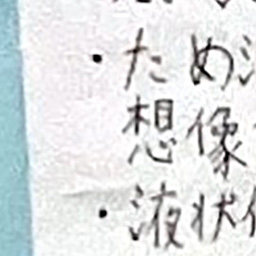 ・ため
想像
・液状